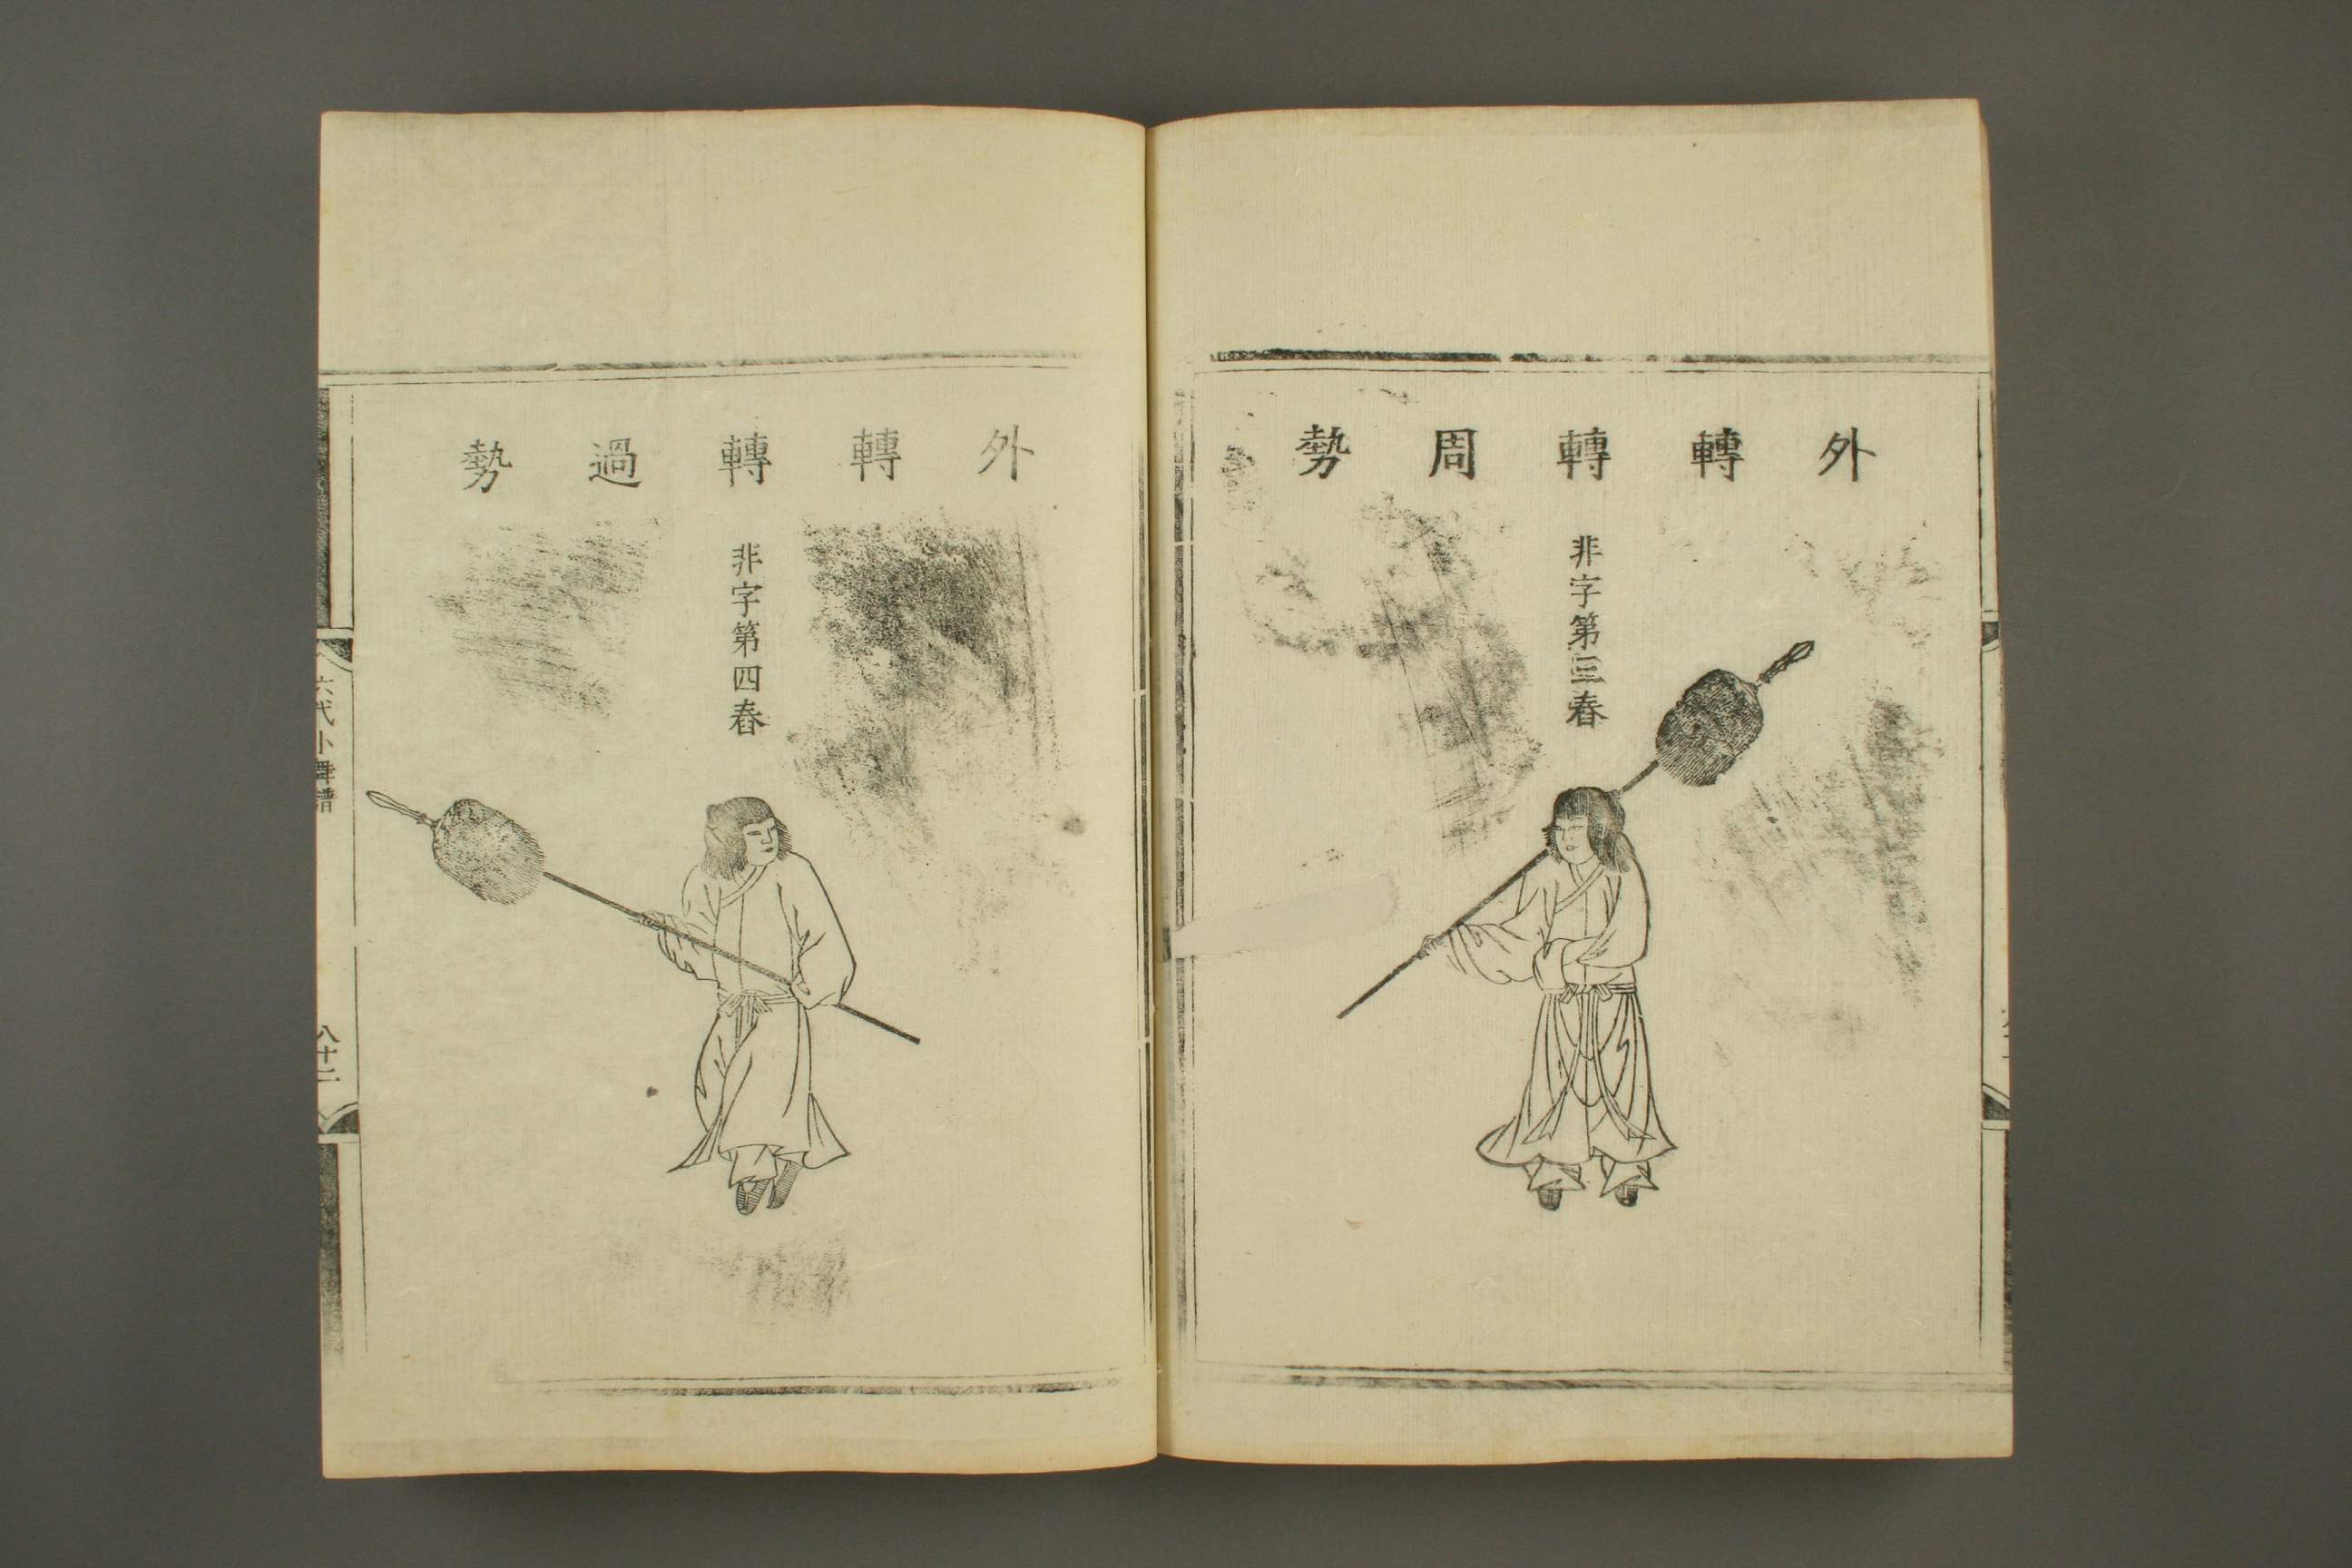 外轉轉周勢
非字第三舂
外轉轉過勢
非字第四舂
六代小舞譜
八十二